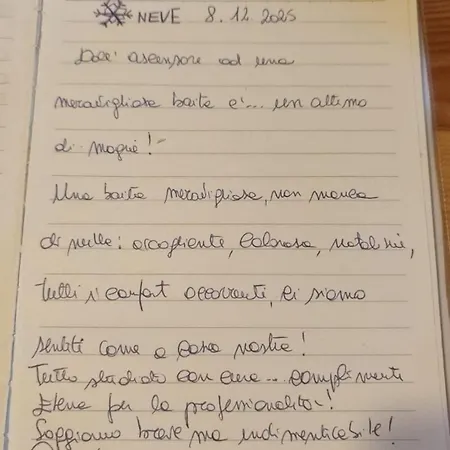 NEVE 8.12.2025
Dall' ascensore ad una
meravigliosa baita e'... un attimo
di magia!
Una baita meravigliosa, non manca
di nulla: accogliente, calorosa, natalizia,
tutti i comfort occorrenti, ci siamo
sentiti come a casa nostra!
Tutto studiato con cura... complimenti
Elena per la professionalità!
Soggiorno breve ma indimenticabile!